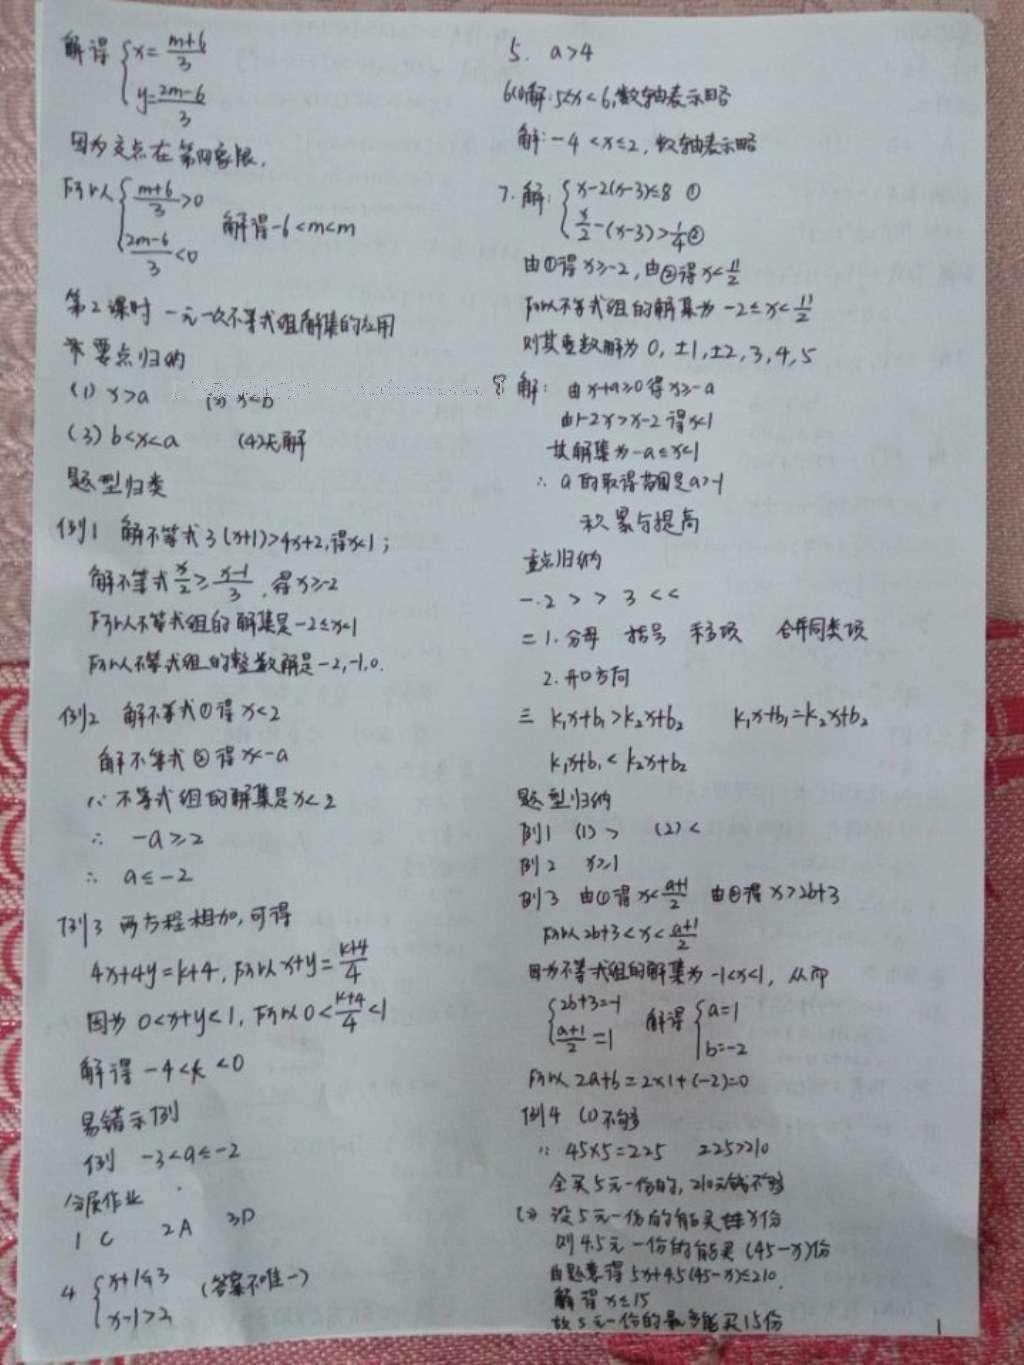 解得{x=(m+6)/3
y=(2m-6)/3
因为交点在第四象限,
所以{(m+6)/3>0
(2m-6)/3<0 解得-6<m<m
第2课时 一元一次不等式组解集的应用
要点归纳
(1) x>a (2) x<b
(3) b<x<a (4)无解
题型归类
例1 解不等式3(x+1)>4x+2,得x<1;
解不等式x/2≥(x-1)/3,得x≥-2
所以不等式组的解集是-2≤x<1
所以不等式组的整数解是-2,-1,0.
例2 解不等式①得x<2
解不等式②得x<-a
∵不等式组的解集是x<2
∴ -a≥2
∴ a≤-2
例3 两方程相加,可得
4x+4y=k+4,所以x+y=(k+4)/4
因为0<x+y<1,所以0<(k+4)/4<1
解得-4<k<0
易错示例
例 -3<a≤-2
分层作业
1 C 2A 3D
4 {x+1≤3
x-1>2 (答案不唯一)
5. a>4
6(1)解:5<x<6,数轴表示略
解:-4<x≤2,数轴表示略
7.解:{x-2(x-3)≤8 ①
x/2-(x-3)>1/4②
由①得x≥-2,由②得x<11/2
所以不等式组的解集为-2≤x<11/2
则其整数解为0,±1,±2,3,4,5
8 解: 由x+a≥0得x≥-a
由1-2x>x-2得x<1
其解集为-a≤x<1
∴ a的取得范围是a>-1
积累与提高
重点归纳
一.2 > > 3 < <
二1.分母 括号 移项 合并同类项
2.开口方向
三 k₁x+b₁>k₂x+b₂ k₁x+b₁=k₂x+b₂
k₁x+b₁<k₂x+b₂
题型归纳
例1 (1)> (2)<
例2 x≥1
例3 由①得x<(a+1)/2 由②得x>2b+3
所以2b+3<x<(a+1)/2
因为不等式组的解集为-1<x<1,从而
{2b+3=-1
(a+1)/2=1 解得{a=1
b=-2
所以2a+b=2×1+(-2)=0
例4 (1)不够
∵ 45×5=225 225>210
全买5元一份的,210元钱不够
(2) 设5元一份的能买x份
则4.5元一份的能买(45-x)份
由题意得5x+4.5(45-x)≤210.
解得x≤15
故5元一份的最多能买15份
1